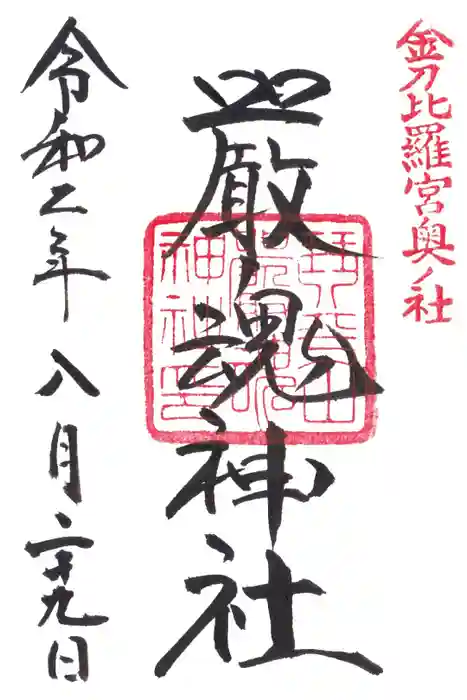 金刀比羅宮奥ノ社
嚴魂神社
令和二年八月二十九日